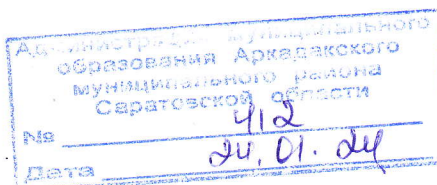 Администрация муниципального
образования Аркадакского
муниципального района
Саратовской области
№ 412
Дата 24.01.24